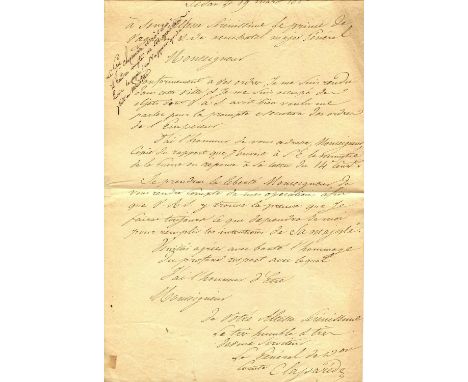 Sedan le 19 mars 18
à Son Altesse Sérénissime le prince de
et de neuchatel major Général
Monseigneur
Conformement a vos ordres, Je me suis rendu
dans cette ville et Je me suis occupé des
objets dont V A S avait bien voulu me
parler pour la prompte execution des ordres
de l'Empereur
J'ai l'honneur de vous adresser, Monseigneur
Copie du rapport que J'envoie à S E le ministre
de la Guerre en reponse à sa lettre du 14 Court
Je prendrai la liberté Monseigneur, de
vous rendre compte de mes operations et
que V A S y trouve la preuve que Je
ferai toujours ce que dependra de moi
pour remplir les intentions de Sa majesté.
Veuillez agréer avec bonté l'hommage
du profond respect avec lequel
J'ai l'honneur d'Etre
Monseigneur
De Votre Altesse Sérénissime
Le très humble et très
devoué Serviteur
Le Général de Don
Comte Claparède